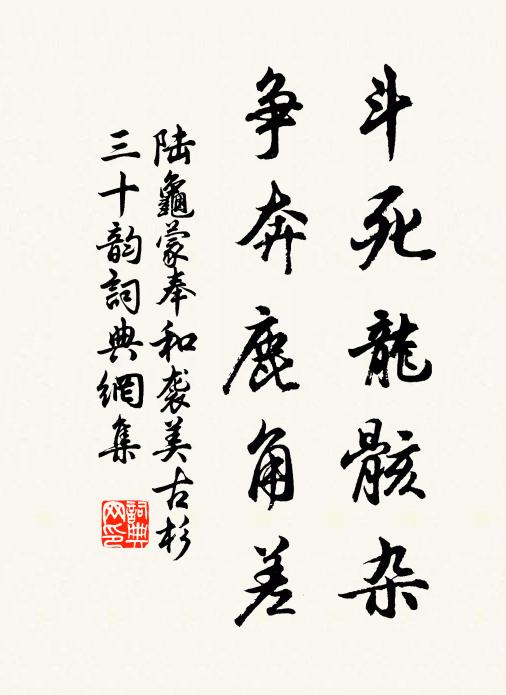 斗死龍骸杂
争奔鹿角差
陆龜蒙奉和袭美古杉
三十韵詞典網集
詞典网印